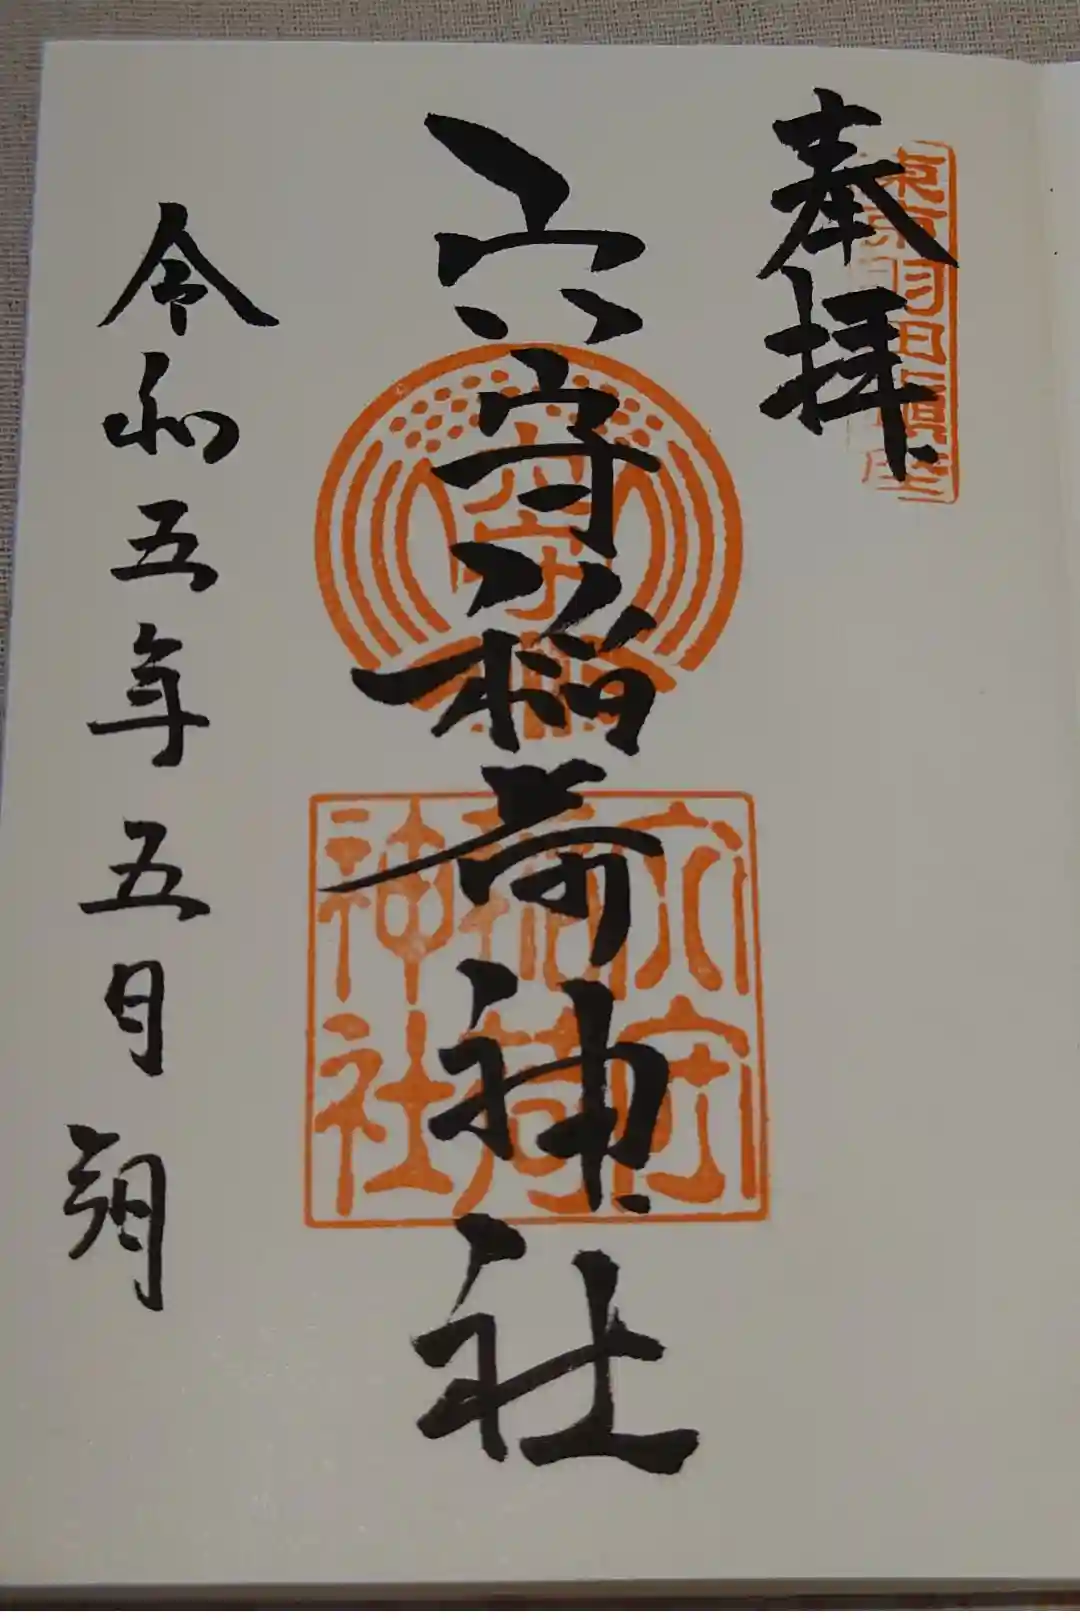 奉拝
東京羽田鎮座
穴守稲荷神社
穴守
稲荷
神社
令和五年五月朔